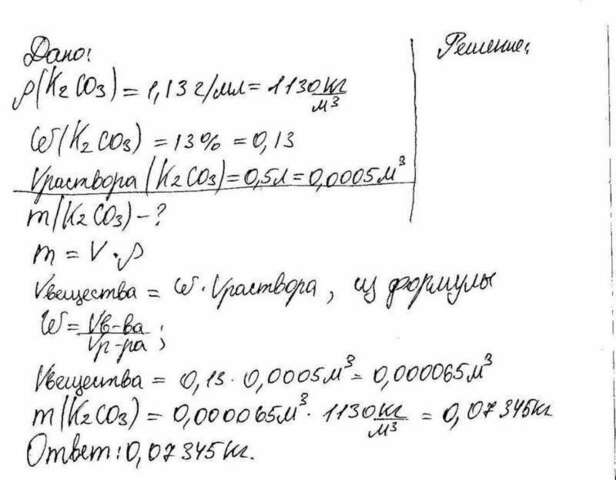 Дано:
Решение:
ρ(K2CO3) = 1,13 г/мл = 1130 кг/м³
ω(K2CO3) = 13% = 0,13
Vраствора (K2CO3) = 0,5л = 0,0005м³
m(K2CO3) - ?
m = V · ρ
Vвещества = ω · Vраствора, из формулы
ω = Vв-ва / Vр-ра;
Vвещества = 0,13 · 0,0005м³ = 0,000065м³
m(K2CO3) = 0,000065м³ · 1130 кг/м³ = 0,07345кг
Ответ: 0,07345кг.